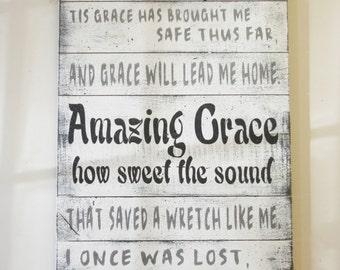 TIS GRACE HAS BROUGHT ME
SAFE THUS FAR
AND GRACE WILL LEAD ME HOME.
Amazing Grace
how sweet the sound
THAT SAVED A WRETCH LIKE ME.
I ONCE WAS LOST,